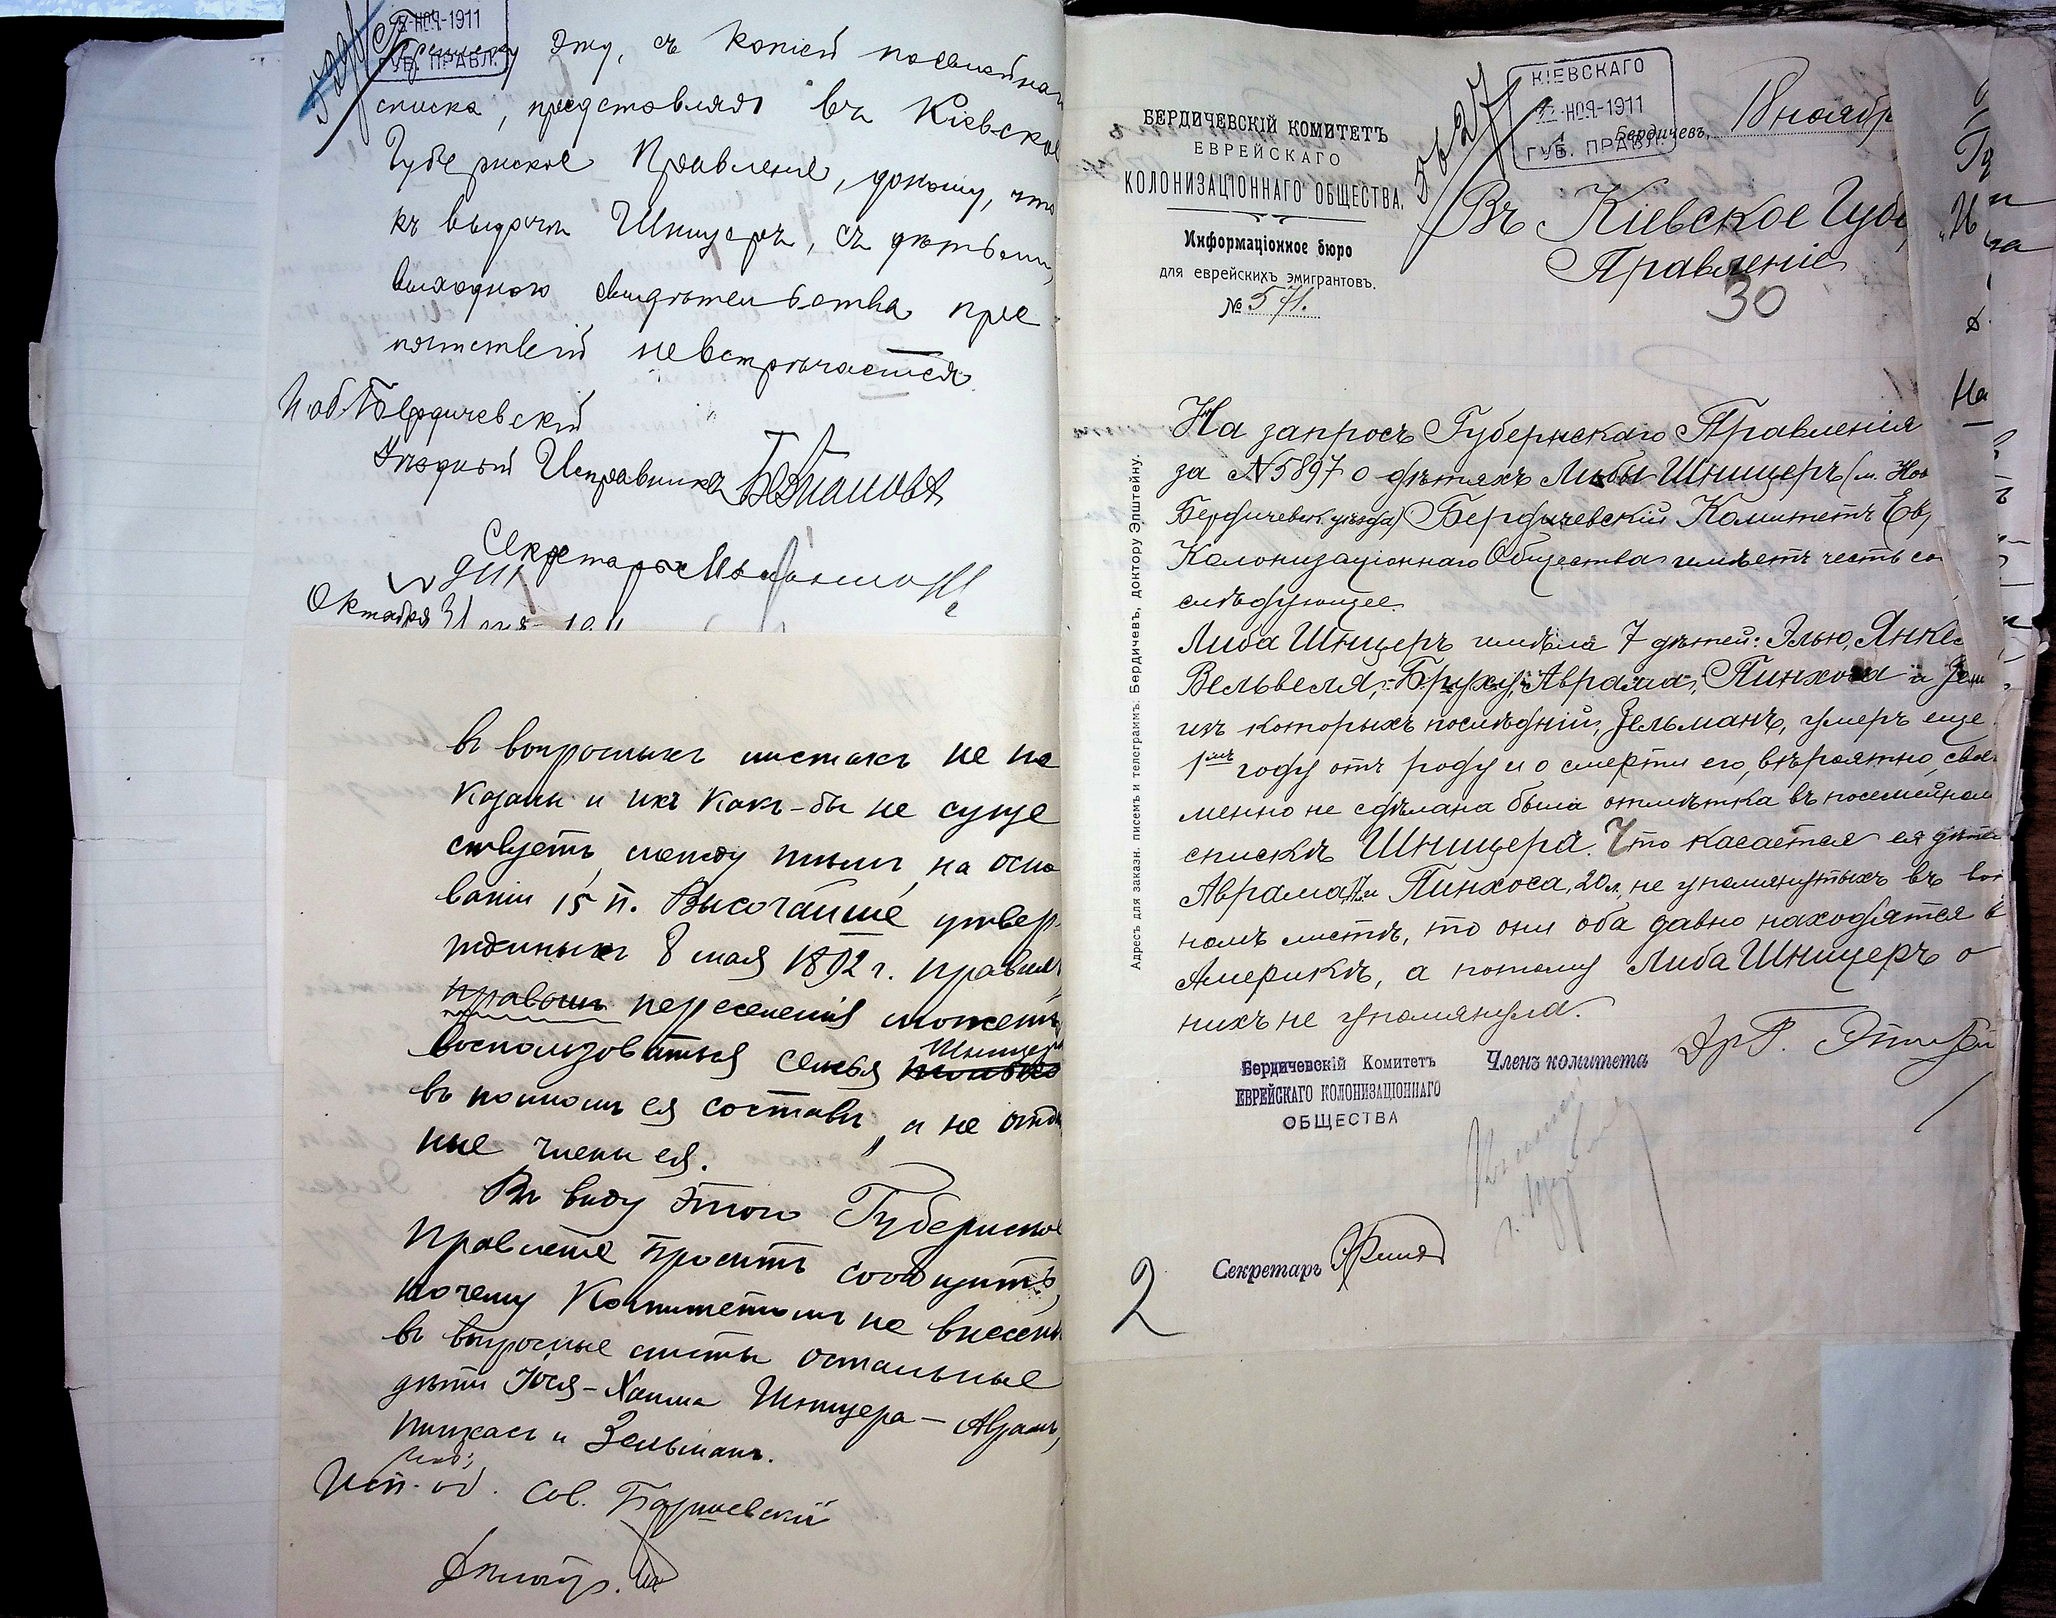 -НОЯ-1911
ГУБ. ПРАВЛ.
эту, съ копіей посемейнаг
списка, представляя въ Кіевское
Губернское Правленіе, доношу, что
къ выдачѣ Шницеръ, съ дѣтьми,
выходного свидѣтельства пре
пятствій не встрѣчается.
И. об. Бердичевскій
Уѣздный Исправникъ
Секретарь
Октября 31 дня 1911
въ вопросныхъ листахъ не по
казаны и ихъ какъ-бы не суще
ствуетъ, между тѣмъ, на осно
ваніи 15 п. Высочайше утвер-
жденныхъ 8 мая 1892 г. правилъ,
правомъ переселенія можетъ
Шницеръ
воспользоваться семья только
въ полномъ ея составѣ, а не отдѣ
ные члены ея.
Въ виду этого Губернское
Правленіе проситъ сообщить,
почему Комитетомъ не внесены
въ вопросные листы остальные
дѣти Іося-Хаима Шницера — Аврамъ,
Пинхасъ и Зельманъ.
Исп. об. Сов.
КІЕВСКАГО
-НОЯ-1911
ГУБ. ПРАВЛ.
5627
БЕРДИЧЕВСКІЙ КОМИТЕТЪ
ЕВРЕЙСКАГО
КОЛОНИЗАЦІОННАГО ОБЩЕСТВА.
Информаціонное бюро
для еврейскихъ эмигрантовъ.
№ 571.
Бердичевъ, 18 ноябр
Въ Кіевское Губе
Правленіе
30
На запросъ Губернскаго Правленія
за № 5897 о дѣтяхъ Либы Шницеръ (м. Нов
Бердичевск. уѣзда) Бердичевскій Комитетъ Ев
Колонизаціоннаго Общества имѣетъ честь со
слѣдующее.
Либа Шницеръ имѣла 7 дѣтей: Элью, Янкел
Вельвеля, Бруху, Аврама, Пинхоса и Зель
изъ которыхъ послѣдній, Зельманъ, умеръ еще
1мъ году отъ роду и о смерти его, вѣроятно, свое
менно не сдѣлана была отмѣтка въ посемейном
спискѣ Шницера. Что касается ея дѣте
Аврама и Пинхоса, 20 л., не упомянутыхъ въ воп
номъ листѣ, то они оба давно находятся в
Америкѣ, а потому Либа Шницеръ о
нихъ не упомянула.
Бердичевскій Комитетъ
ЕВРЕЙСКАГО КОЛОНИЗАЦІОННАГО
ОБЩЕСТВА
Членъ комитета Др
Секретарь
2
Адресъ для заказн. писемъ и телеграммъ: Бердичевъ, доктору Эпштейну.